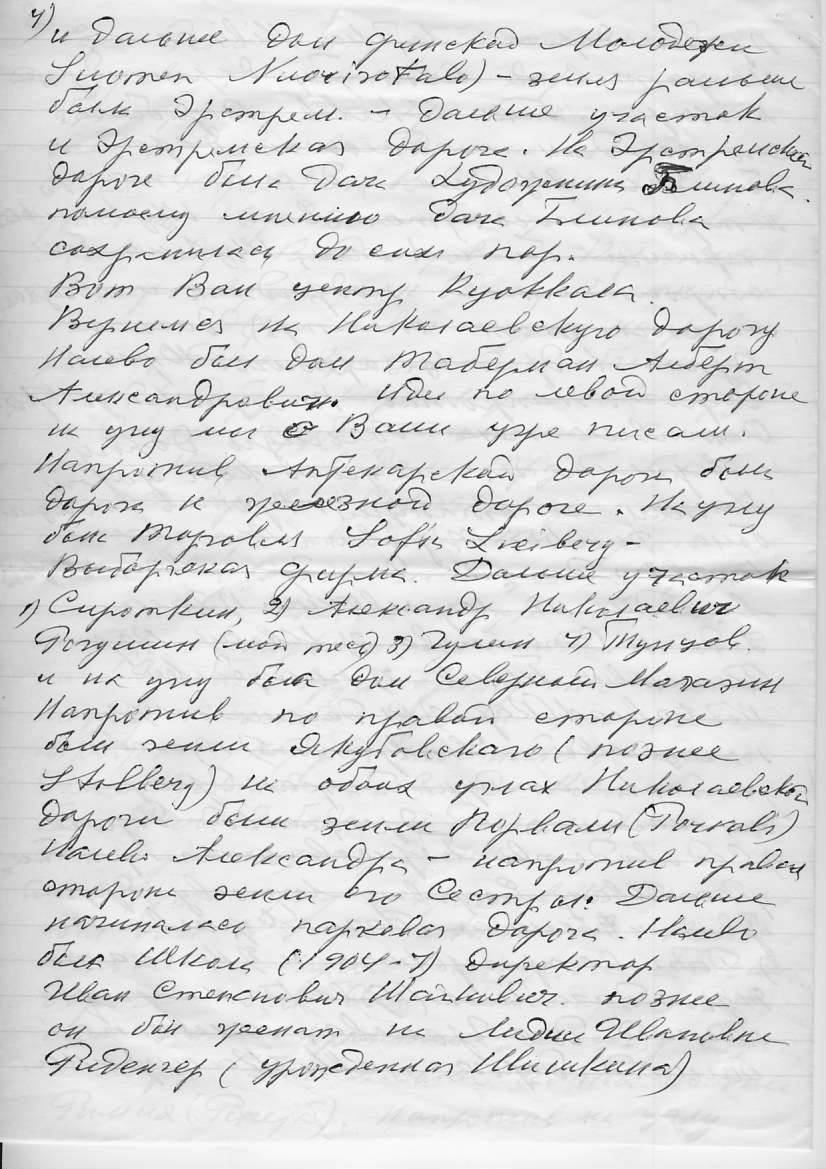 4)
и дальше дом финской Молодежи
Suomen Nuorisotalo) – земля раньше
была Эрстрем. – Дальше участок
и Эрстремская дорога. На Эрстремской
дороге была дача Художника Блинова.
по моему мнению дача Блинова
сохранилась до сих пор.
Вот Вам центр Куоккала.
Вернемся на Николаевскую дорогу
Налево был дом Таберман Альберт
Александрович. Идя по левой стороне
на углу мы с Вами уже писали.
Напротив Аптекарской дороги была
дорога к железной дороге. На углу
была Торговля Sofia
Выборгская фирма. Дальше участок
1) Сироткин, 2) Александр Николаевич
Рогушин (мой тесть) 3) Гулин 4) Тунцов.
и на углу был дом Северный Магазин
Напротив по правой стороне
были земли Якубовского (позднее
Stolberg) на обоих углах Николаевской
дороги были земли Порвали (Porvali)
Налево Александра – напротив правой
стороне земли его Сестры. Дальше
начиналась парковая дорога. Налево
была Школа (1904-7) директор
Иван Степанович позднее
он был женат на Лидии Ивановне
(урожденная Шишкина)